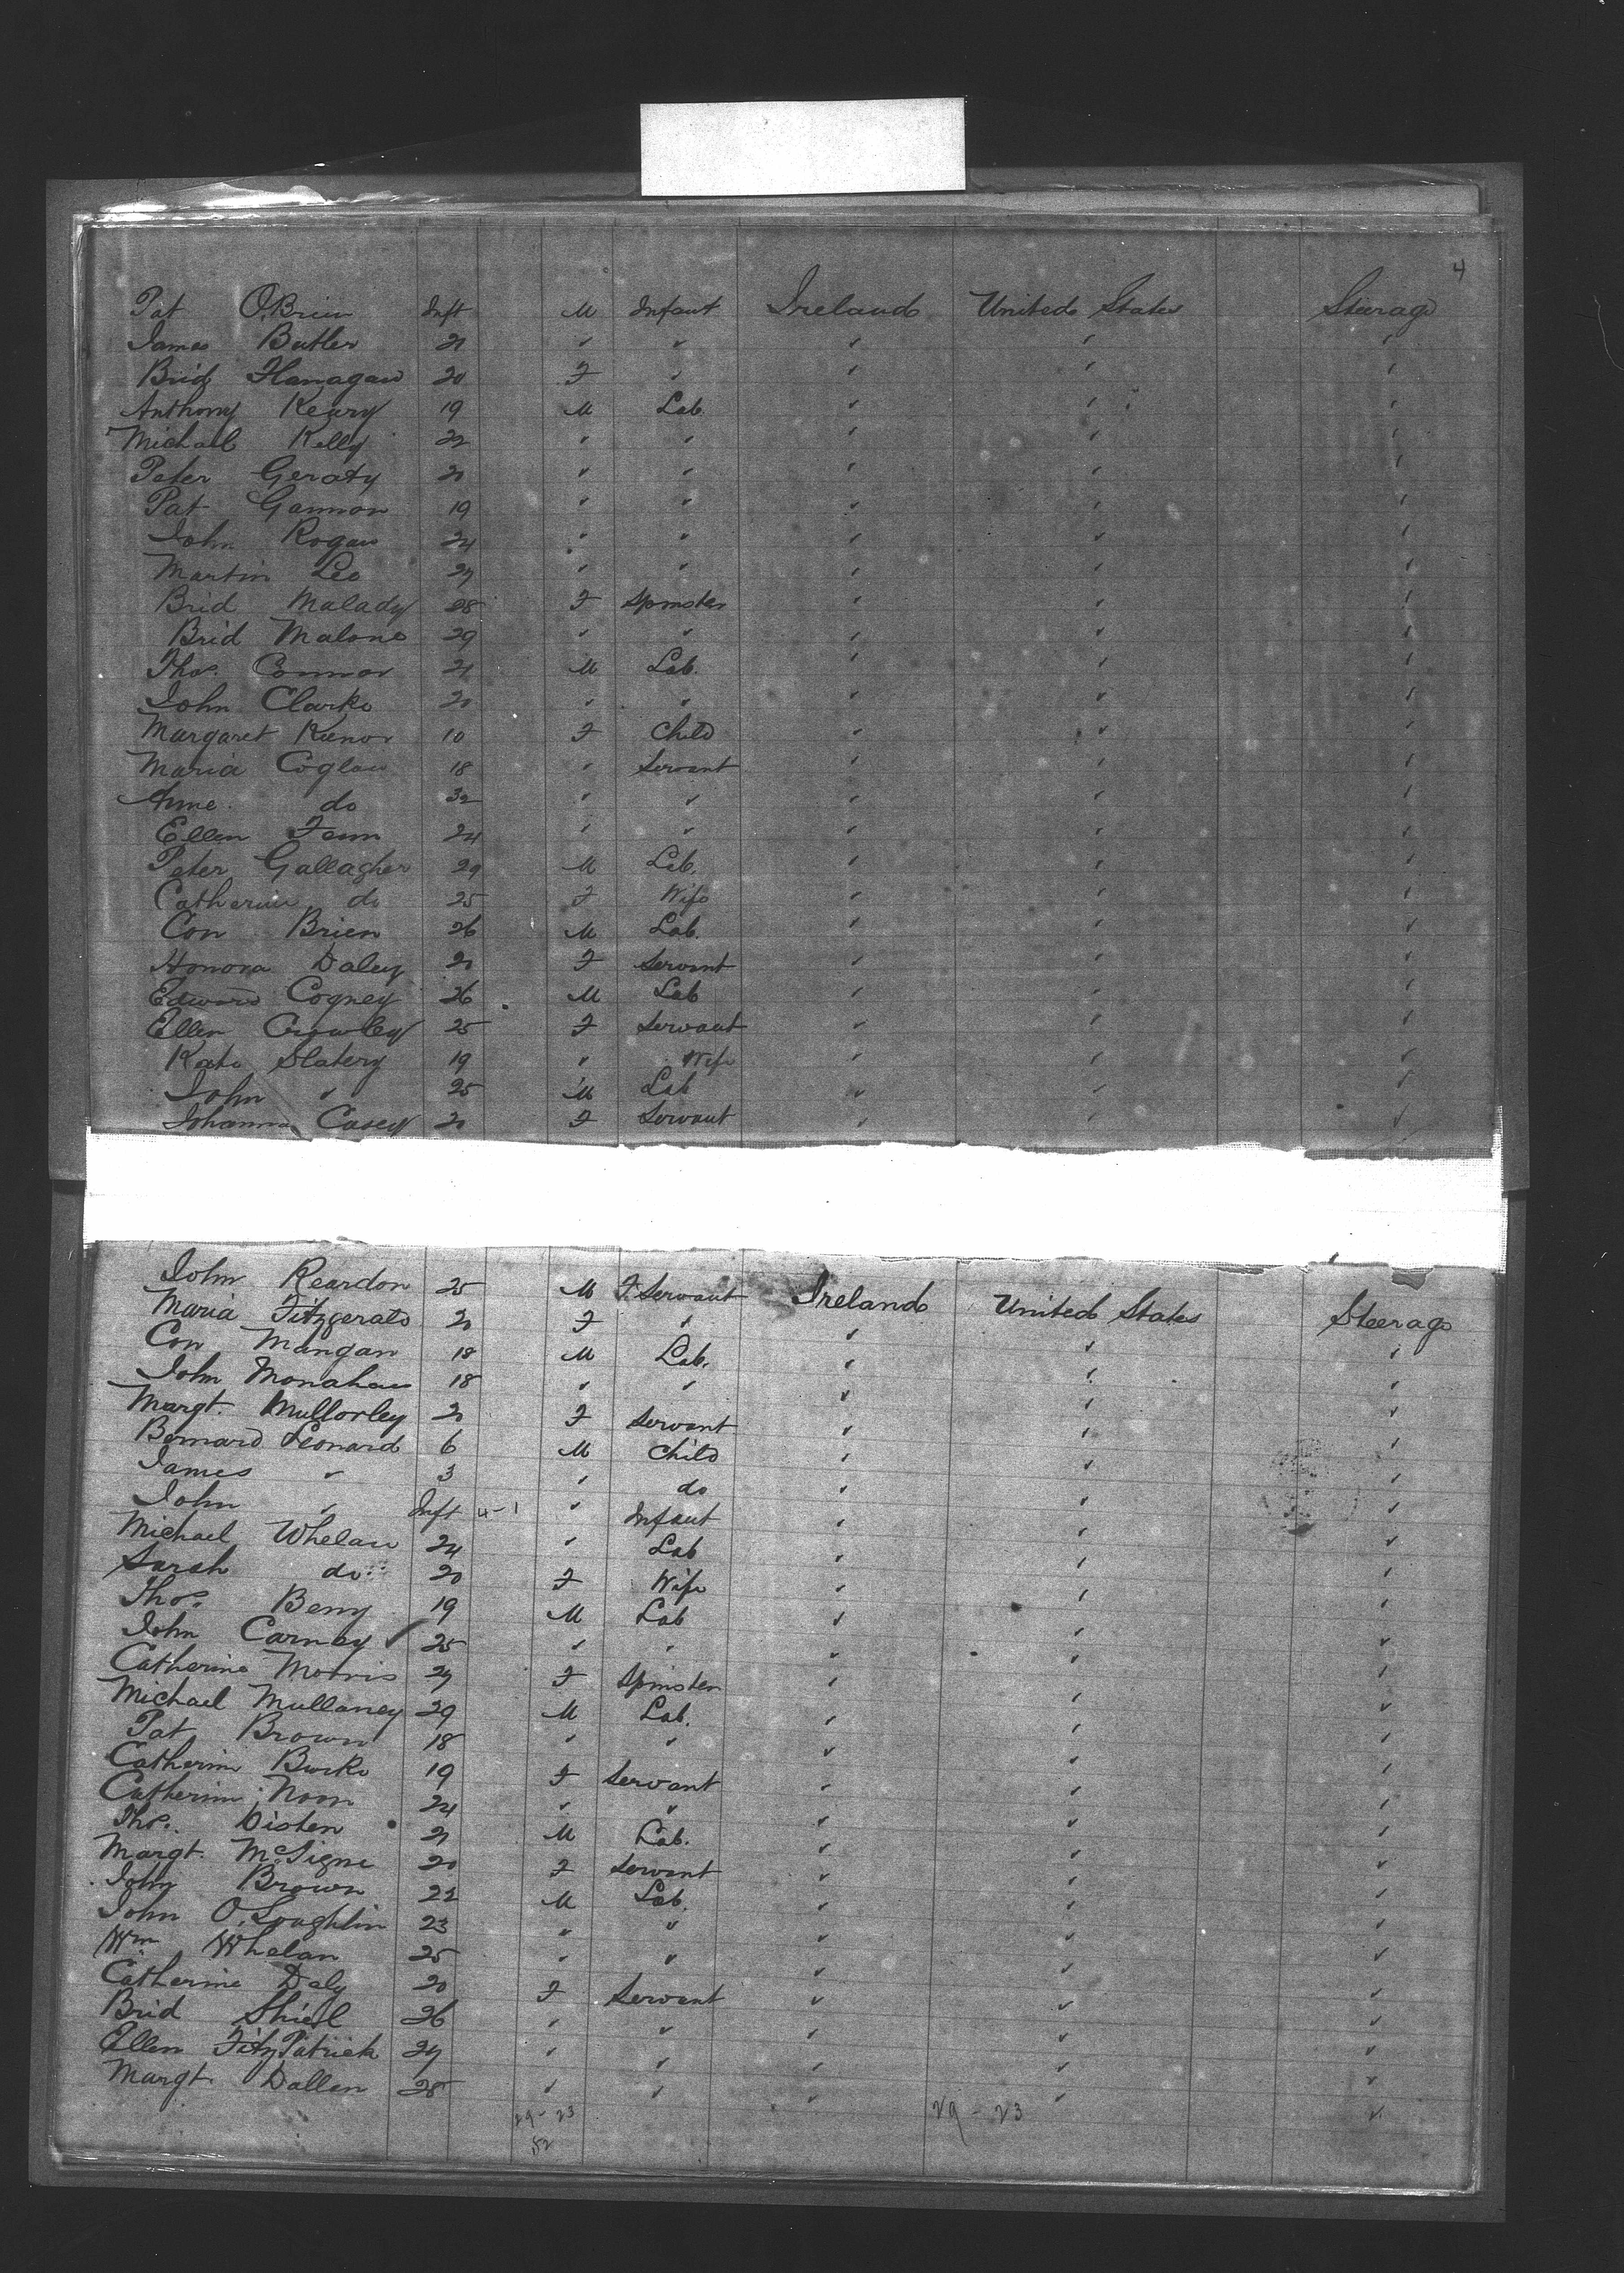 4
Pat O'Brien Inft M Infant Ireland United States Steerage
James Butler 21 " " " " "
Brid Flanagan 20 F " " " "
Anthony Keary 19 M Lab. " " "
Michael Kelly 22 " " " " "
Peter Geraty 21 " " " " "
Pat Gannon 19 " " " " "
John Rogan 24 " " " " "
Martin Leo " " " " "
Brid Malady 28 F Spinster " " "
Brid Malone 29 " " " " "
Thos. Connor 21 M Lab. " " "
John Clarke 20 " " " " "
Margaret 10 F Child " " "
Maria Coglan 18 " Servant " " "
Anne do 32 " " " " "
Ellen 24 " " " " "
Peter Gallagher 29 M Lab. " " "
Catherine do 25 F Wife " " "
Con Brien 26 M Lab. " " "
Honora Daley 20 F Servant " " "
Edward Cogney 26 M Lab " " "
Ellen Crowley 25 F Servant " " "
Kate Slatery 19 " Wife " " "
John " 25 M Lab " " "
Johanna Casey 20 F Servant " " "
John Reardon 25 M F Servant Ireland United States Steerage
Maria Fitzgerald 20 F " " " "
Con Mangan 18 M Lab. " " "
John Monahan 18 " " " " "
Margt. Mullorley 20 F Servant " " "
Bernard Leonard 6 M Child " " "
James " 3 " do " " "
John " Inft 4-1 " Infant " " "
Michael Whelan 24 " Lab " " "
Sarah do 20 F Wife " " "
Thos. Berry 19 M Lab " " "
John Carney 25 " " " " "
Catherine Morris 27 F Spinster " " "
Michael Mullaney 29 M Lab. " " "
Pat Brown 18 " " " " "
Catherine Burke 19 F Servant " " "
Catherine Noon 24 " " " " "
Thos. Disten 21 M Lab. " " "
Margt. McTigne 20 F Servant " " "
John Brown 22 M Lab. " " "
John O'Loughlin 23 " " " " "
Wm Whelan 25 " " " " "
Catherine Daly 20 F Servant " " "
Brid Shiel 26 " " " " "
Ellen FitzPatrick 27 " " " " "
Margt Dallen 28 " " " " "
29-23 29-23
52